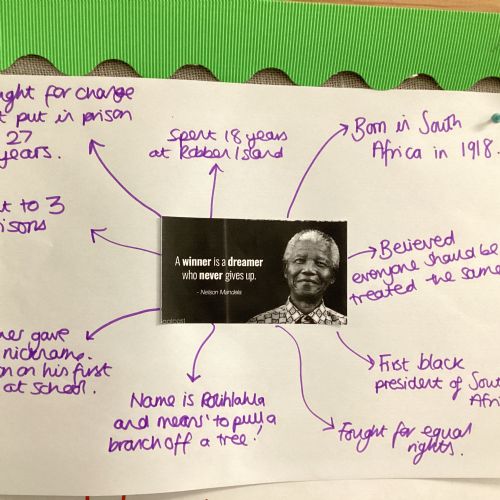 ght for change
t put in prison
27
years.
Spent 18 years
at Robben Island
Born in South
Africa in 1918.
t to 3
isons
A winner is a dreamer
who never gives up.
- Nelson Mandela
Believed
everyone should be
treated the same
her gave
nickname.
on on his first
at school.
Name is Rolihlahla
and means 'to pull a
branch off a tree'.
First black
president of Sout
Afri
Fought for equal
rights.